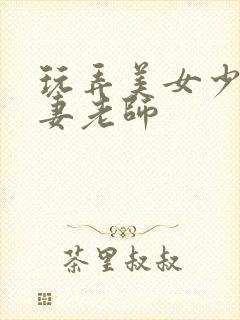 玩弄美女少
妻老师
茶里叔叔